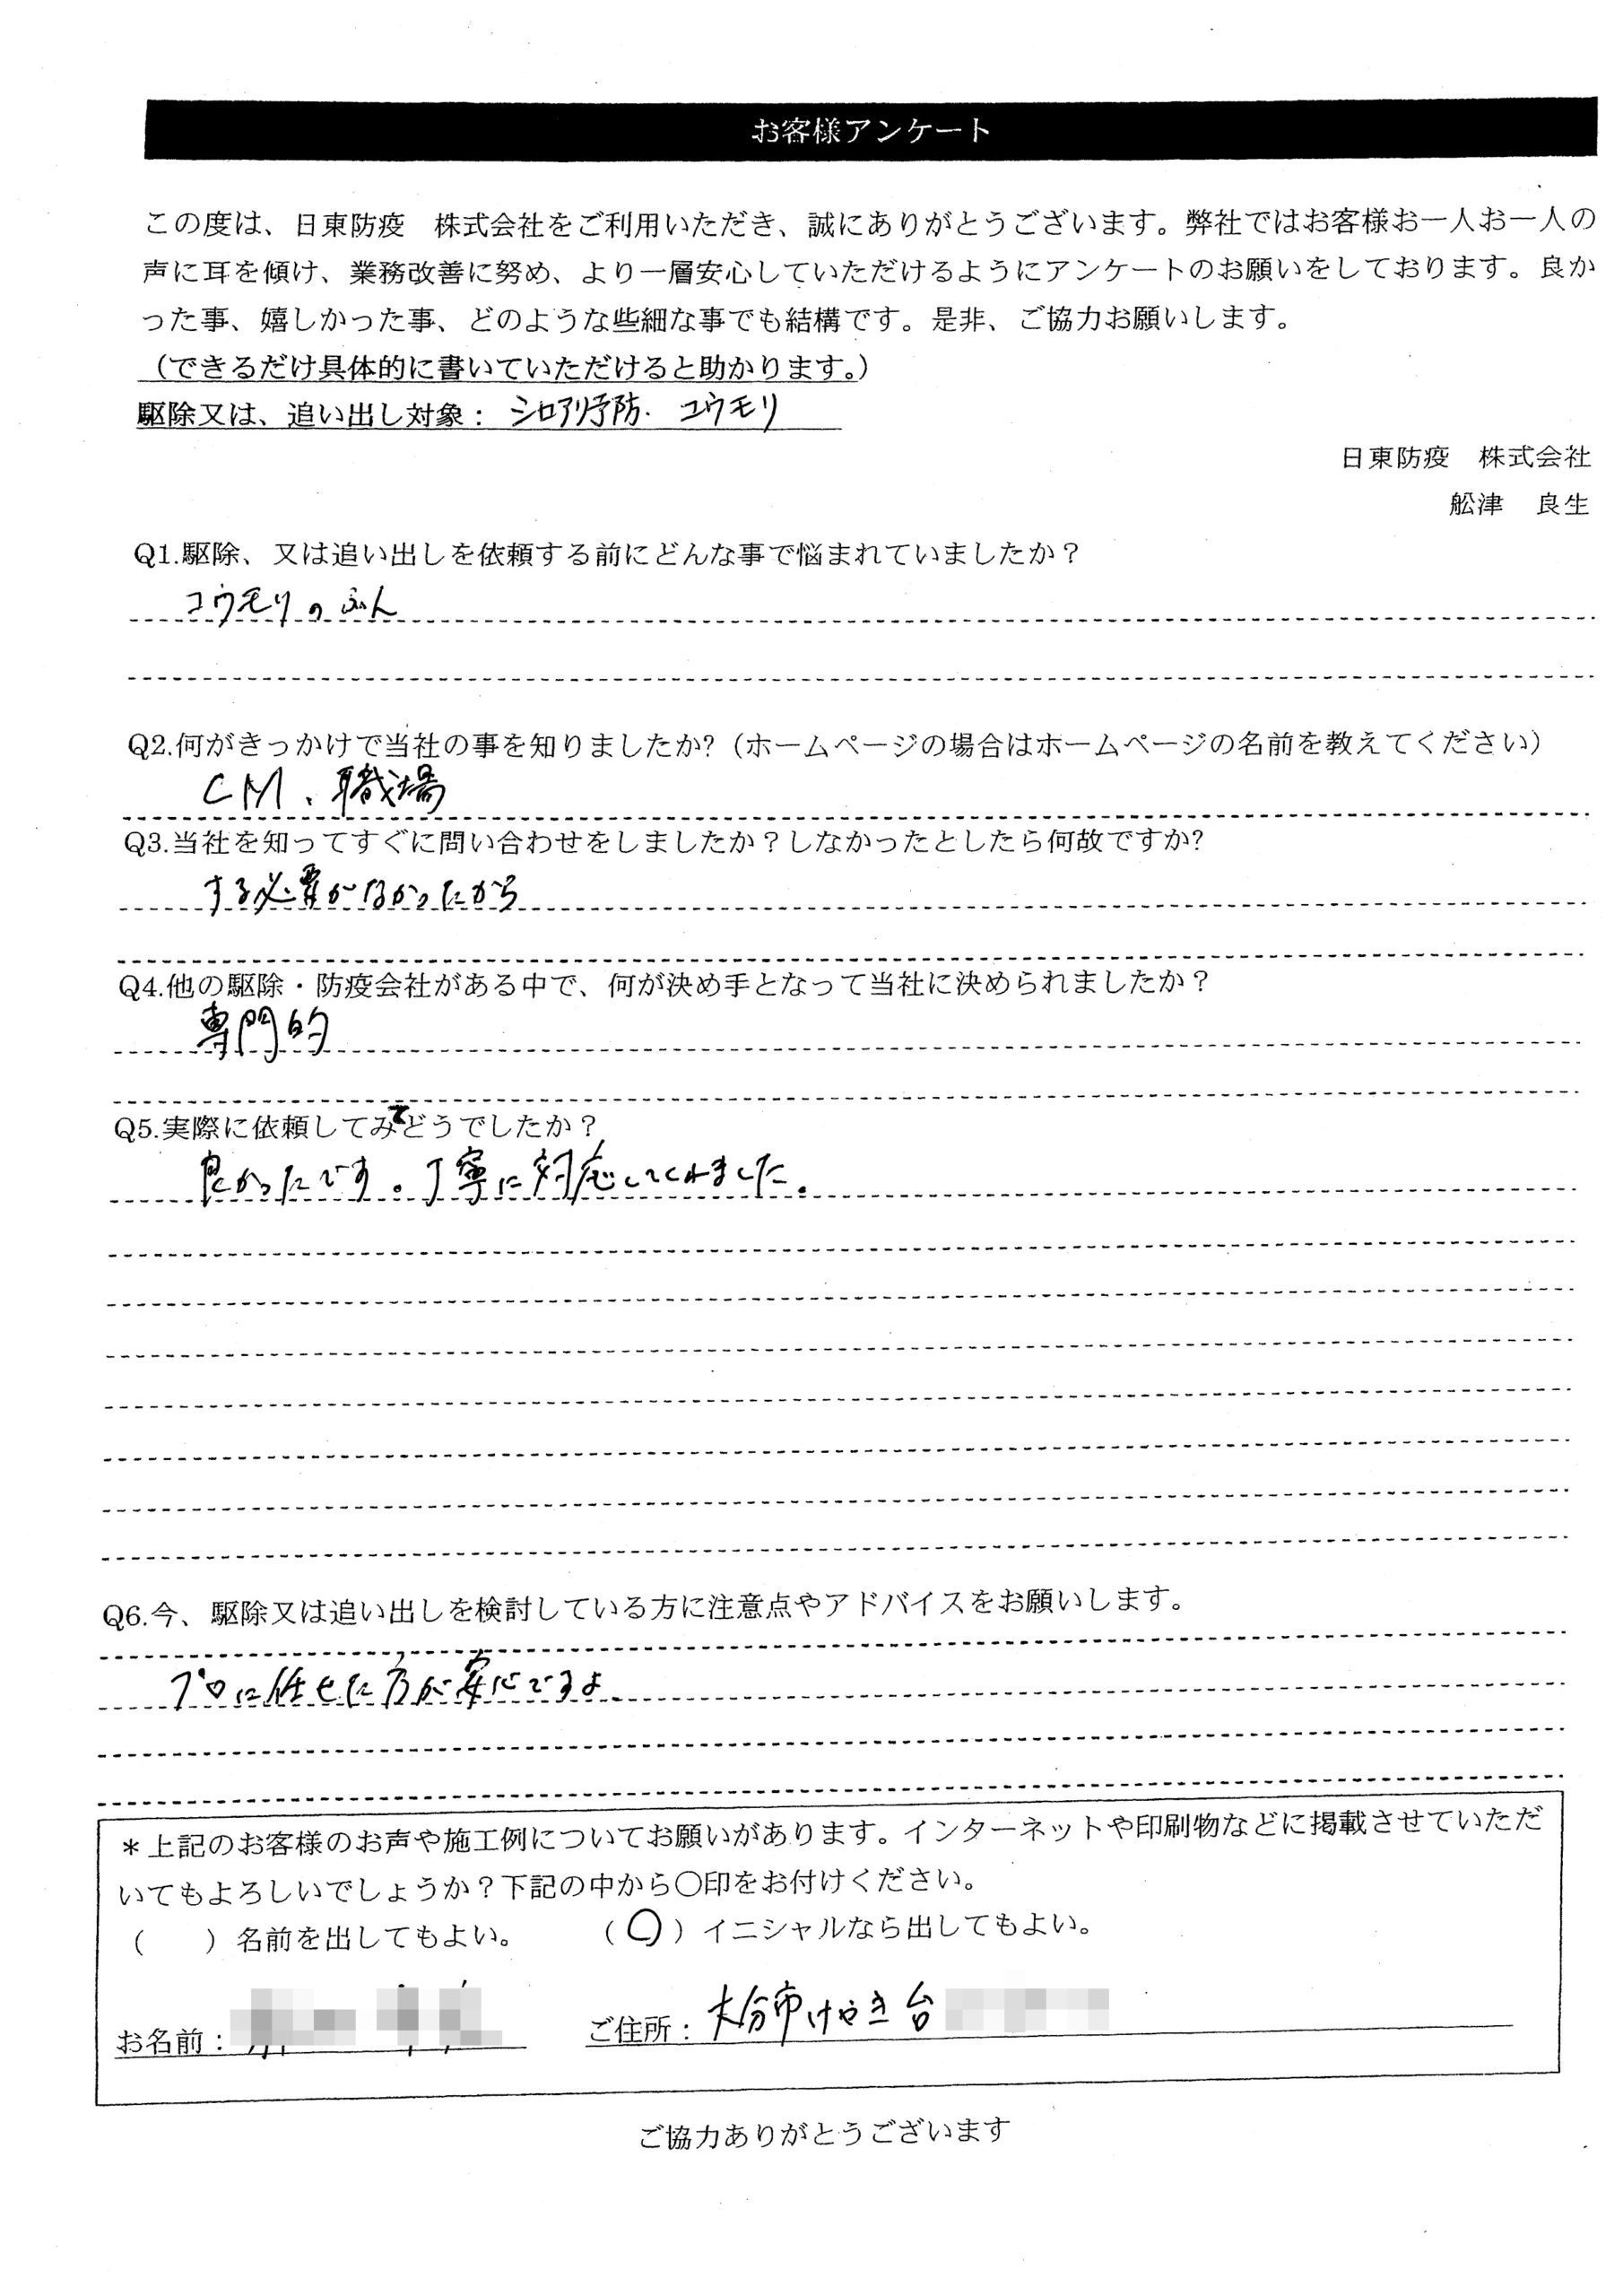 お客様アンケート
この度は、日東防疫　株式会社をご利用いただき、誠にありがとうございます。弊社ではお客様お一人お一人の
声に耳を傾け、業務改善に努め、より一層安心していただけるようにアンケートのお願いをしております。良か
った事、嬉しかった事、どのような些細な事でも結構です。是非、ご協力お願いします。
（できるだけ具体的に書いていただけると助かります。）
駆除又は、追い出し対象：シロアリ予防．コウモリ
日東防疫　株式会社
舩津　良生
Q1.駆除、又は追い出しを依頼する前にどんな事で悩まれていましたか？
コウモリのふん
Q2.何がきっかけで当社の事を知りましたか?（ホームページの場合はホームページの名前を教えてください）
CM、職場
Q3.当社を知ってすぐに問い合わせをしましたか？しなかったとしたら何故ですか?
する必要がなかったから
Q4.他の駆除・防疫会社がある中で、何が決め手となって当社に決められましたか？
専門的
Q5.実際に依頼してみてどうでしたか？
良かったです。丁寧に対応してくれました。
Q6.今、駆除又は追い出しを検討している方に注意点やアドバイスをお願いします。
プロに任せた方が安心ですよ。
＊上記のお客様のお声や施工例についてお願いがあります。インターネットや印刷物などに掲載させていただ
いてもよろしいでしょうか？下記の中から〇印をお付けください。
（　　）名前を出してもよい。　　（〇）イニシャルなら出してもよい。
お名前：　　ご住所：大分市けやき台
ご協力ありがとうございます